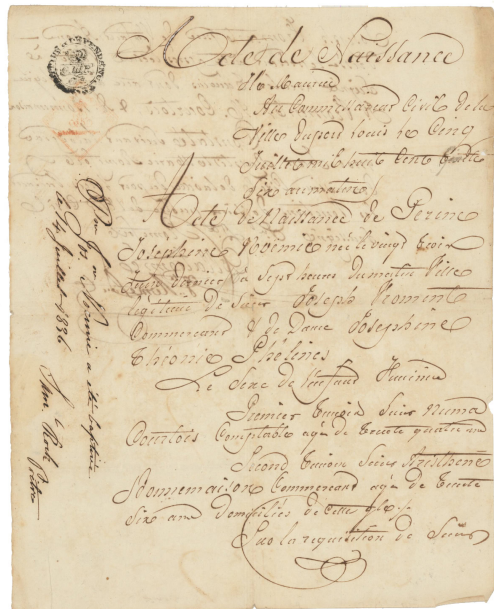 Acte de Naissance
Ile Maurice
Au Commissariat Civil de la
Ville du port louis le Cinq
Juillet mil huit cent trente
six au matin
Acte de Naissance de Perine
Josephine Noemie née le vingt trois
Juin dernier à Sept heures du matin fille
légitime de Sieur Joseph Froment
Commercant & de Dame Josephine
Thiomi
Le Sexe de l'enfant féminin
Premier temoin Sieur Numa
Courtois Comptable agé de trente quatre ans
Second temoin Sieur Aristhene
Bonnemaison Commercant agé de trente
Six ans domiciliés de cette
Sur la requisition de Sieur
Noemie a été baptisée
le 14 Juillet 1836